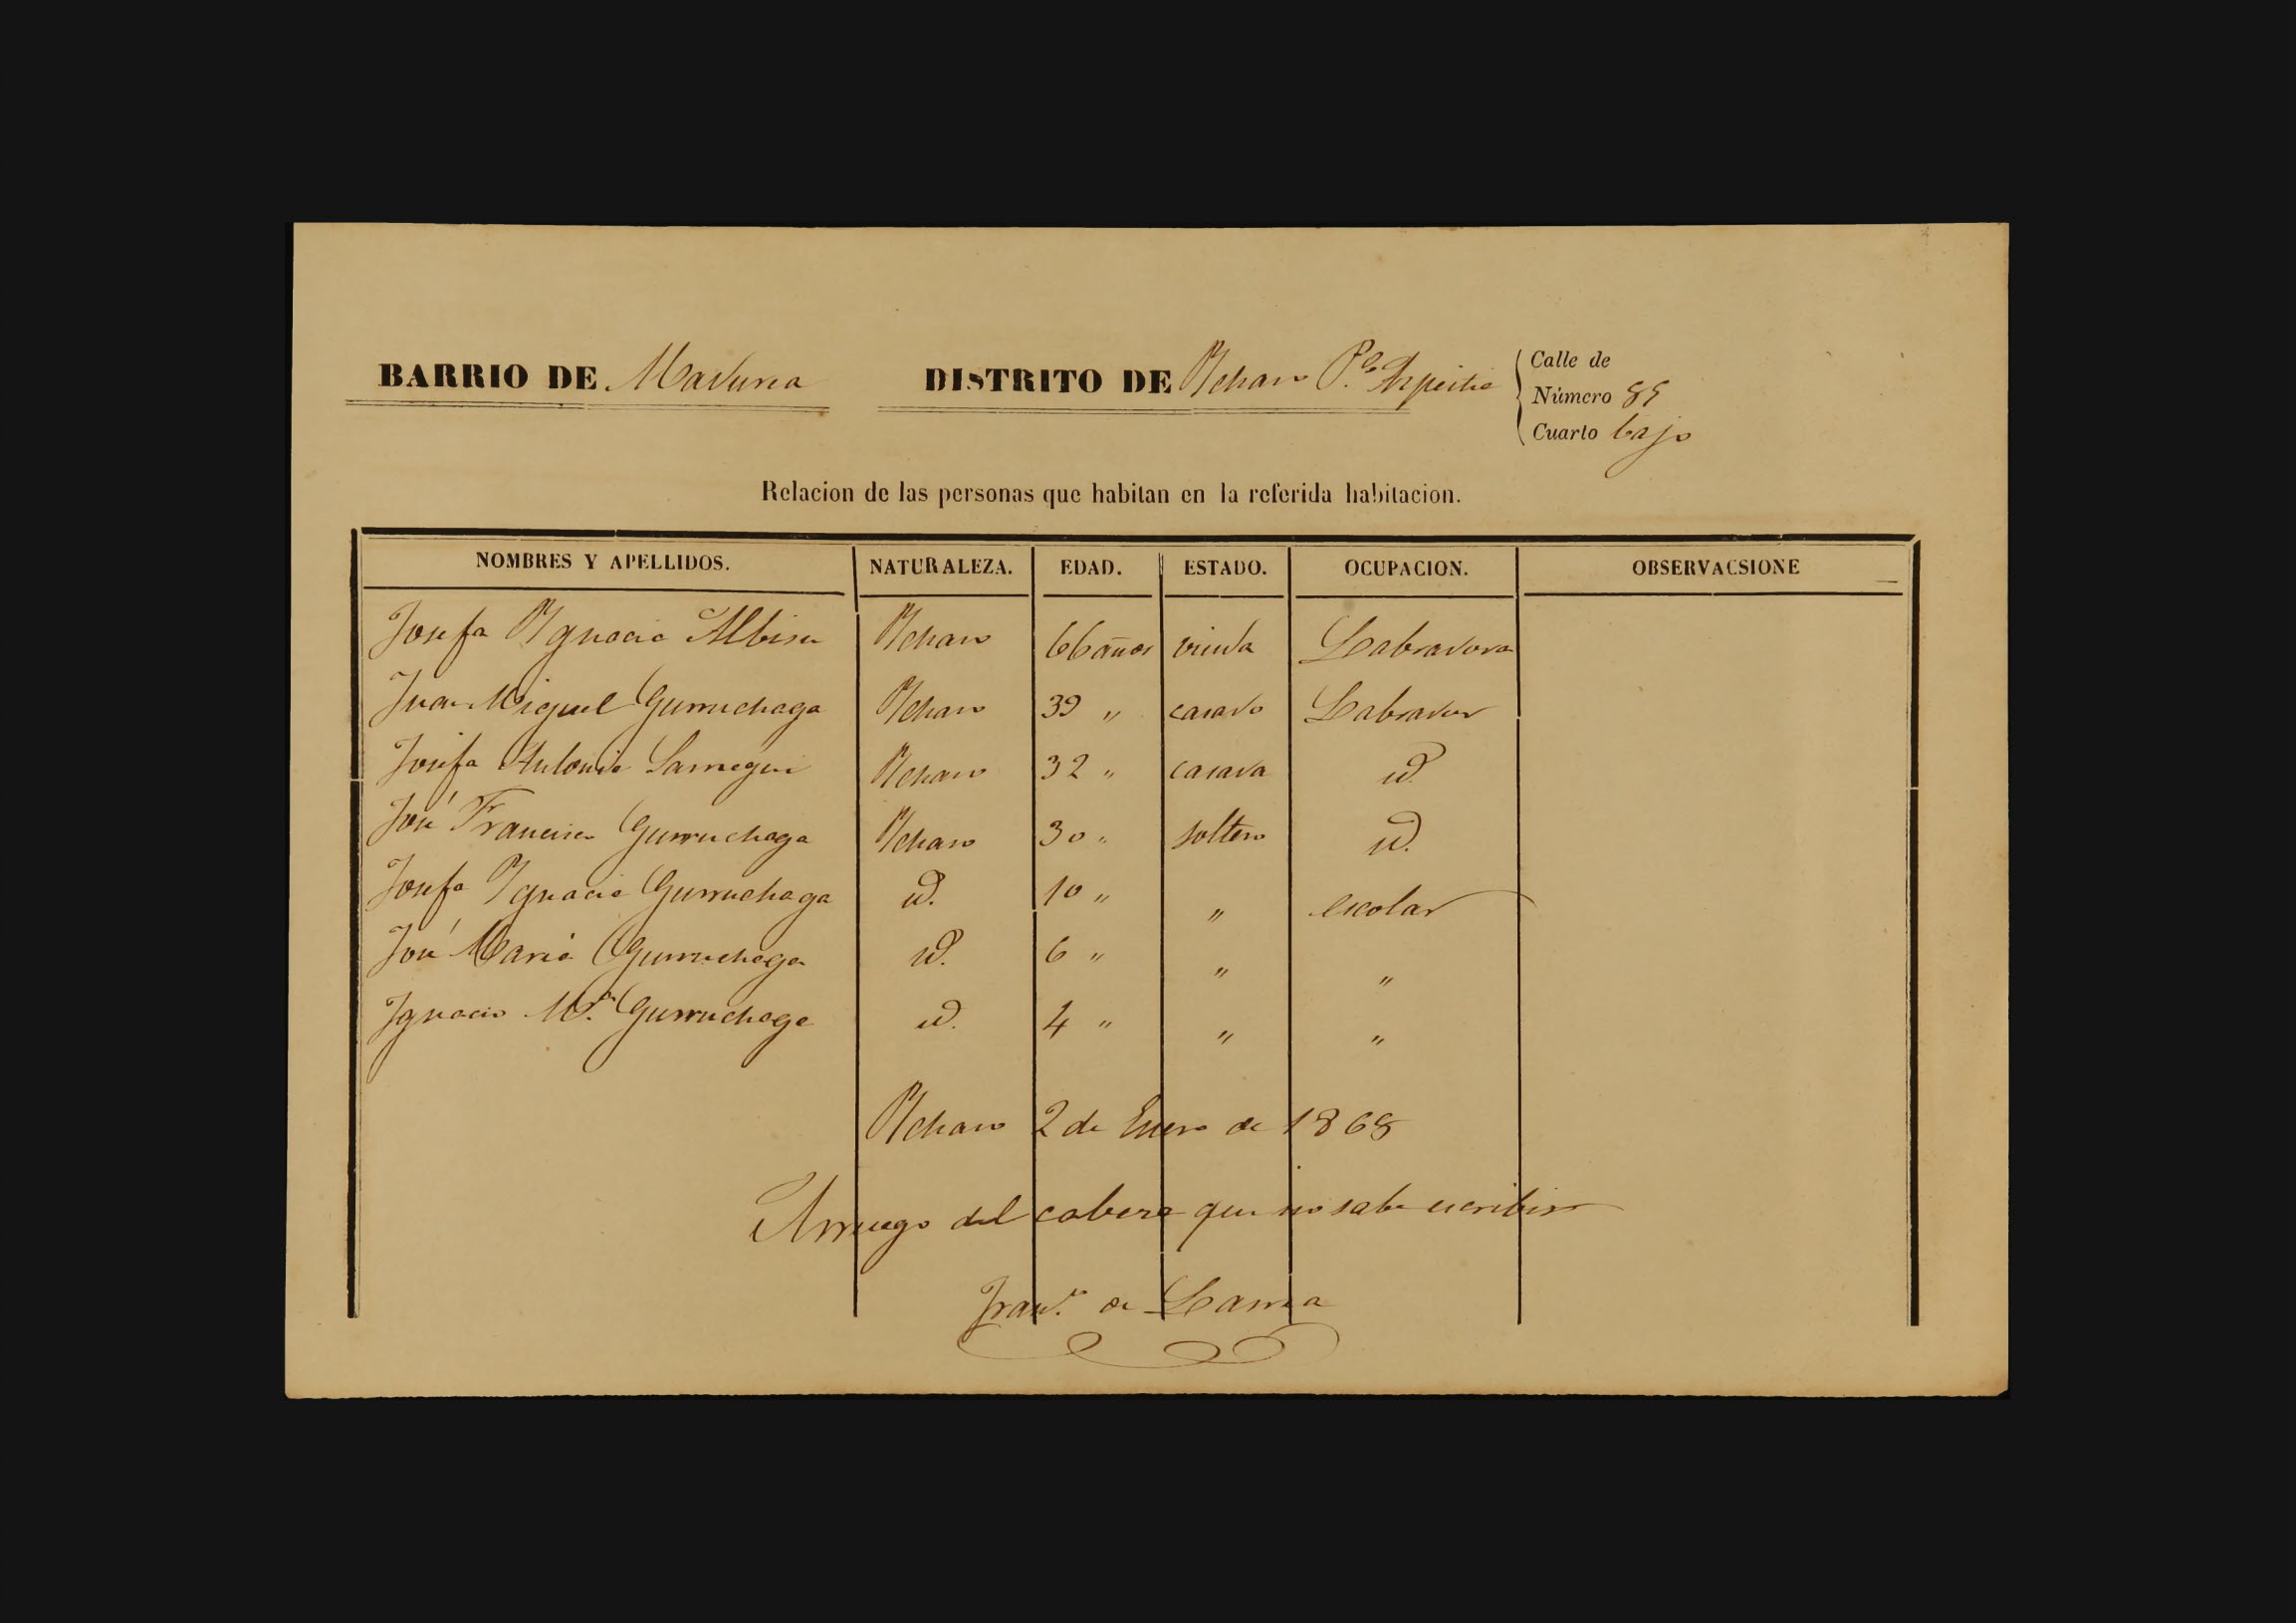 BARRIO DE Madurea DISTRITO DE Ychaso P.º Azpeitia Calle de
Número 89
Cuarto bajo
Relacion de las personas que habitan en la referida habitacion.
NOMBRES Y APELLIDOS. NATURALEZA. EDAD. ESTADO. OCUPACION. OBSERVACSIONE
Josefa Ygnacia Albisu Ychaso 66 años viuda Labradora
Juan Miguel Gurruchaga Ychaso 39 " casado Labrador
Josefa Antonia Sarregui Ychaso 32 " casada id.
José Francisco Gurruchaga Ychaso 30 " soltero id.
Josefa Ygnacia Gurruchaga id. 10 " " escolar
José Maria Gurruchaga id. 6 " " "
Ignacio M.ª Gurruchaga id. 4 " " "
Ychaso 2 de Enero de 1868
Arruego del cabeza que no sabe escribir
Fran.co de